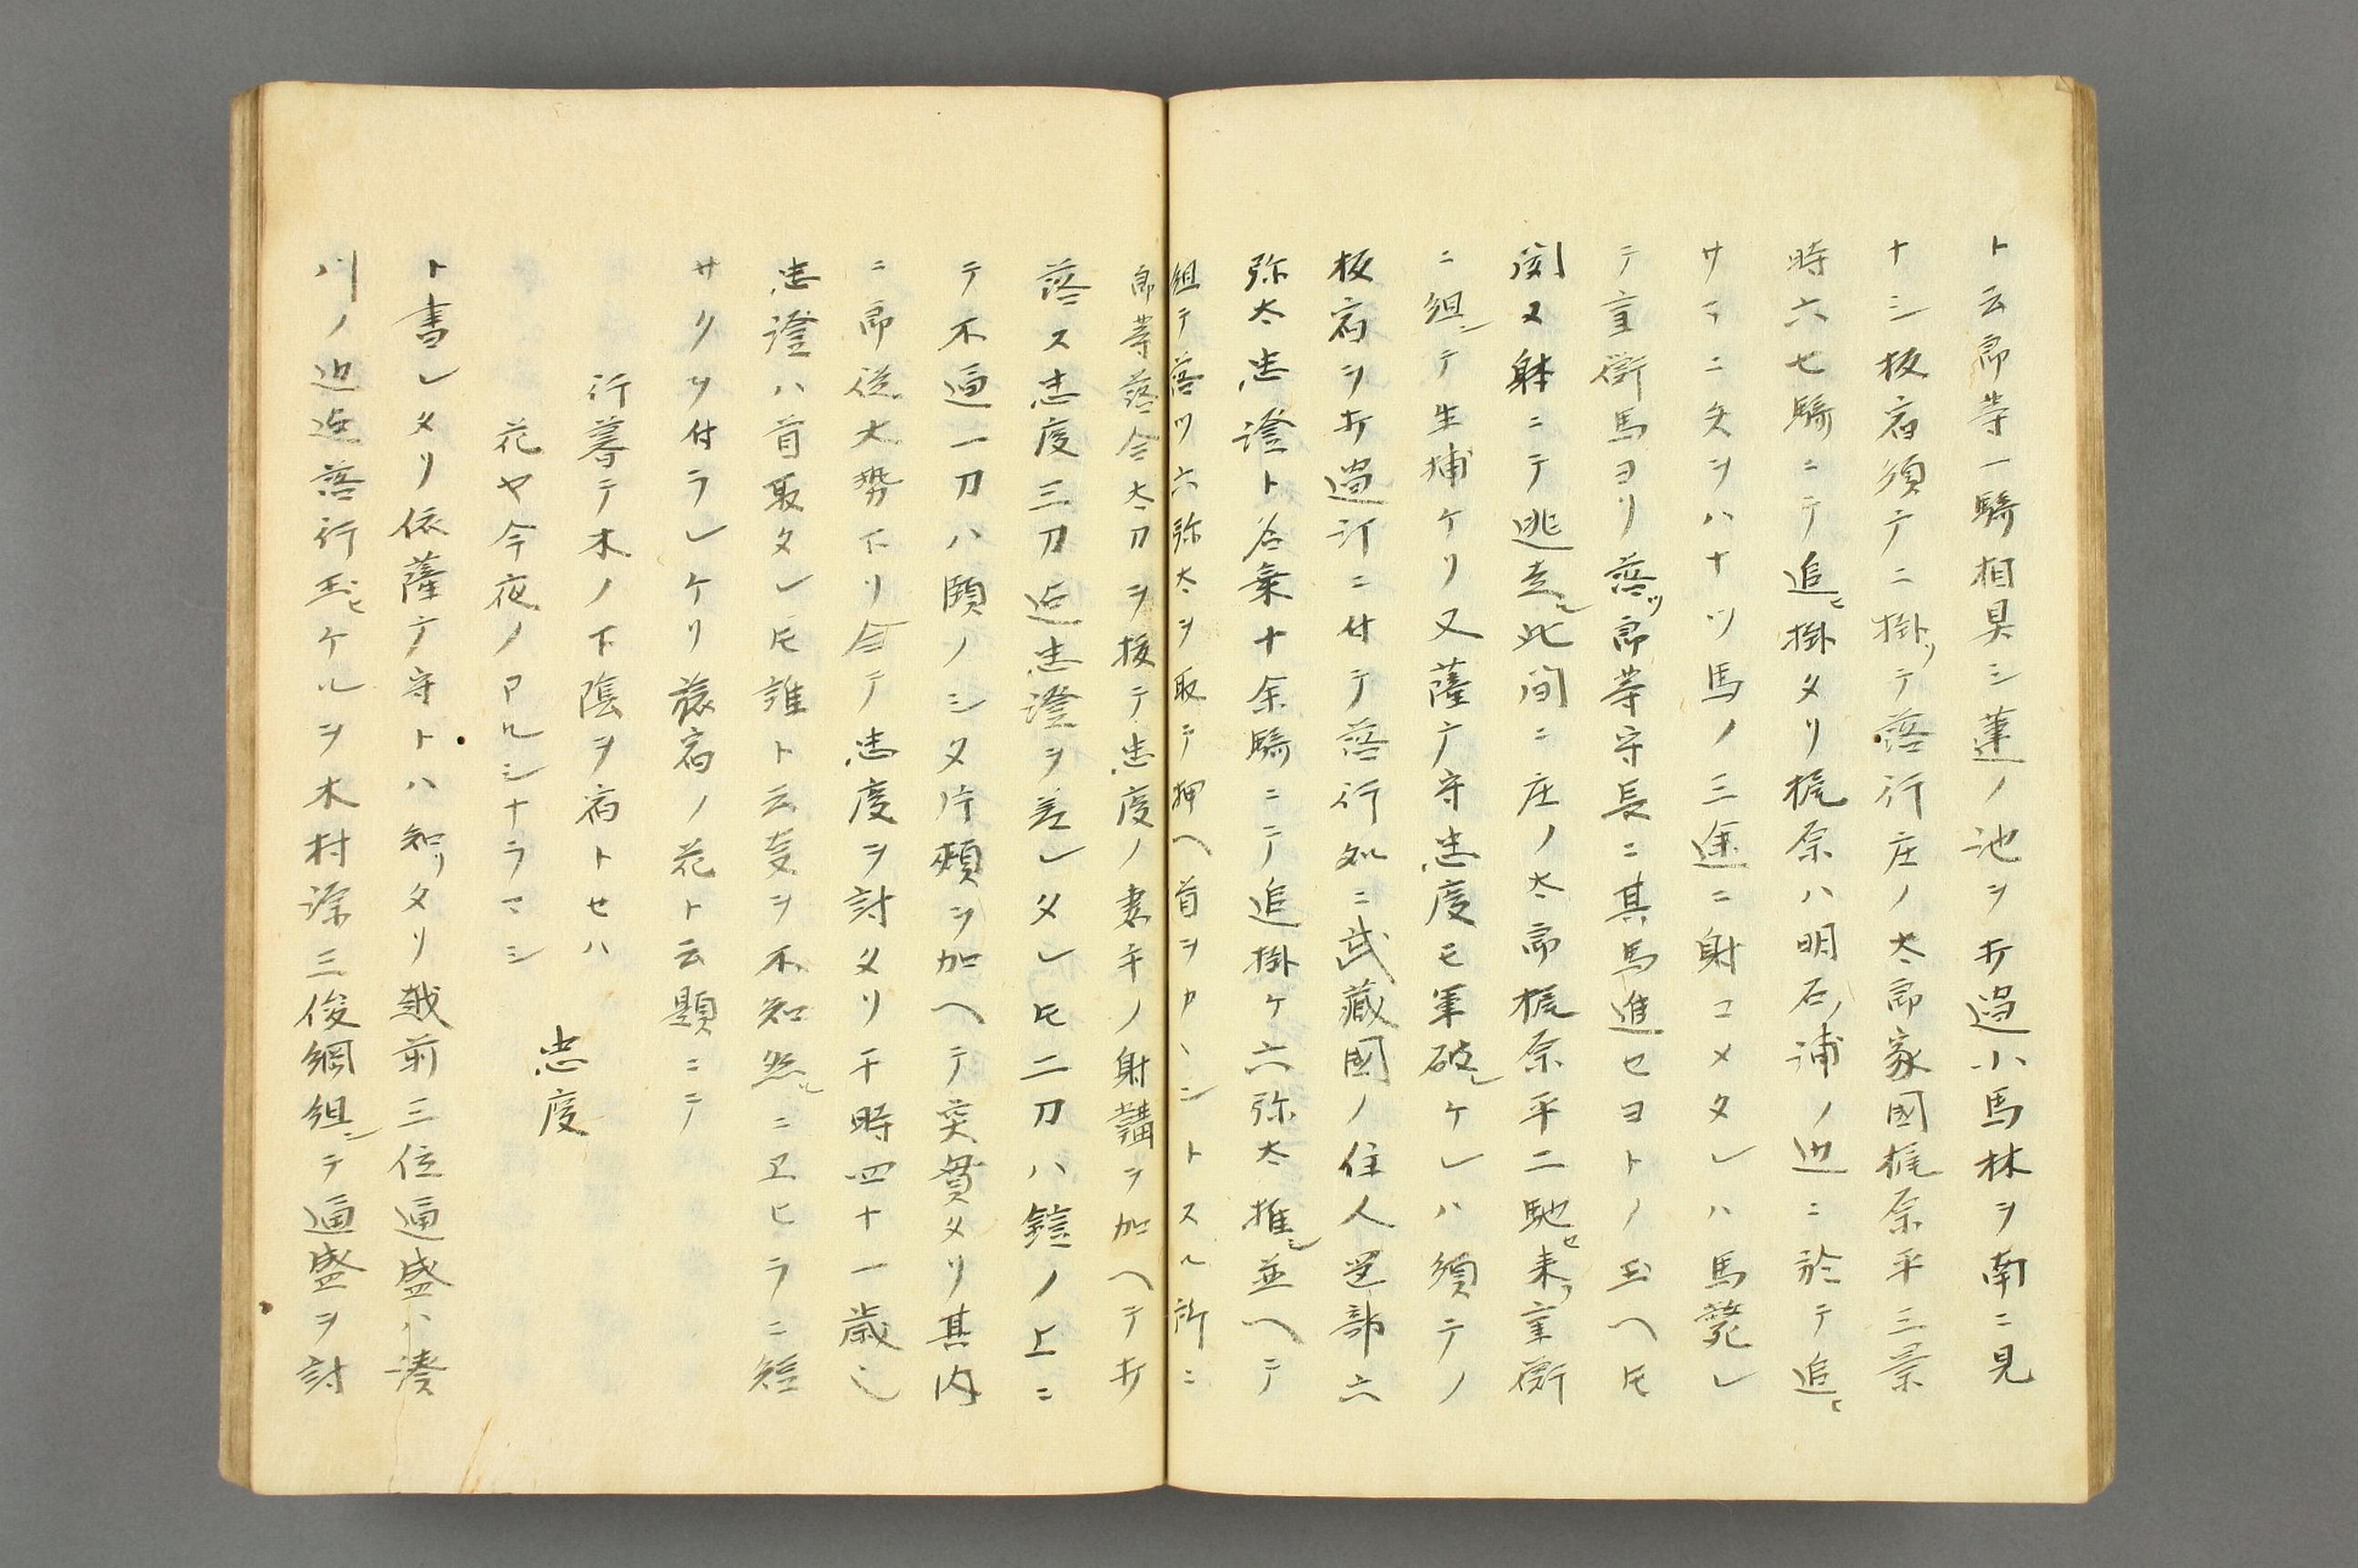 ト云郎等一騎相具シ蓮ノ池ヲ打過小馬林ヲ南ニ見
ナシ板宿須广ニ掛リテ落行庄ノ太郎家國梶原平三景
時六七騎ニテ追ヒ掛タリ梶原ハ明石ノ浦ノ辺ニ於テ追ヒ
サマニ矢ヲハナツ馬ノ三途ニ射コメタレハ馬斃レ
テ重衡馬ヨリ落ツ郎等守長ニ其馬進セヨトノ玉ヘ𪜈
聞ヌ躰ニテ逃走ル此间ニ庄ノ太郎梶原平二馳セ来リ重衡
ニ組シテ生捕ケリ又薩广守忠度モ軍破レケレハ須テノ
板宿ヲ打過汀ニ付テ落行処ニ武藏國ノ住人岡部六
弥太忠澄ト名乗十余騎ニテ追掛ケ六弥太推シ並ヘテ
組テ落ツ六弥太ヲ取テ押ヘ首ヲカヽントスル所ニ
郎等落合太刀ヲ抜テ忠度ノ妻手ノ射韝ヲ加ヘテ打
落ス忠度三刀迠忠澄ヲ差レタレ𪜈二刀ハ鎧ノ上ニ
テ不通一刀ハ頤ノシタ片頬ヲ加ヘテ突貫タリ其内
ニ郎従大勢下リ合テ忠度ヲ討タリ干時四十一歳也
忠澄ハ首取タレ𪜈誰ト云叓ヲ不知然ルニヱヒラニ短
サクヲ付ラレケリ旅宿ノ花ト云題ニテ
行暮テ木ノ下陰ヲ宿トセハ
花ヤ今夜ノアルシナラマシ
忠度
ト書レタリ依薩广守トハ知リタリ越前三位通盛ハ湊
川ノ辺迠落行玉ヒケルヲ木村源三俊綱組シテ通盛ヲ討